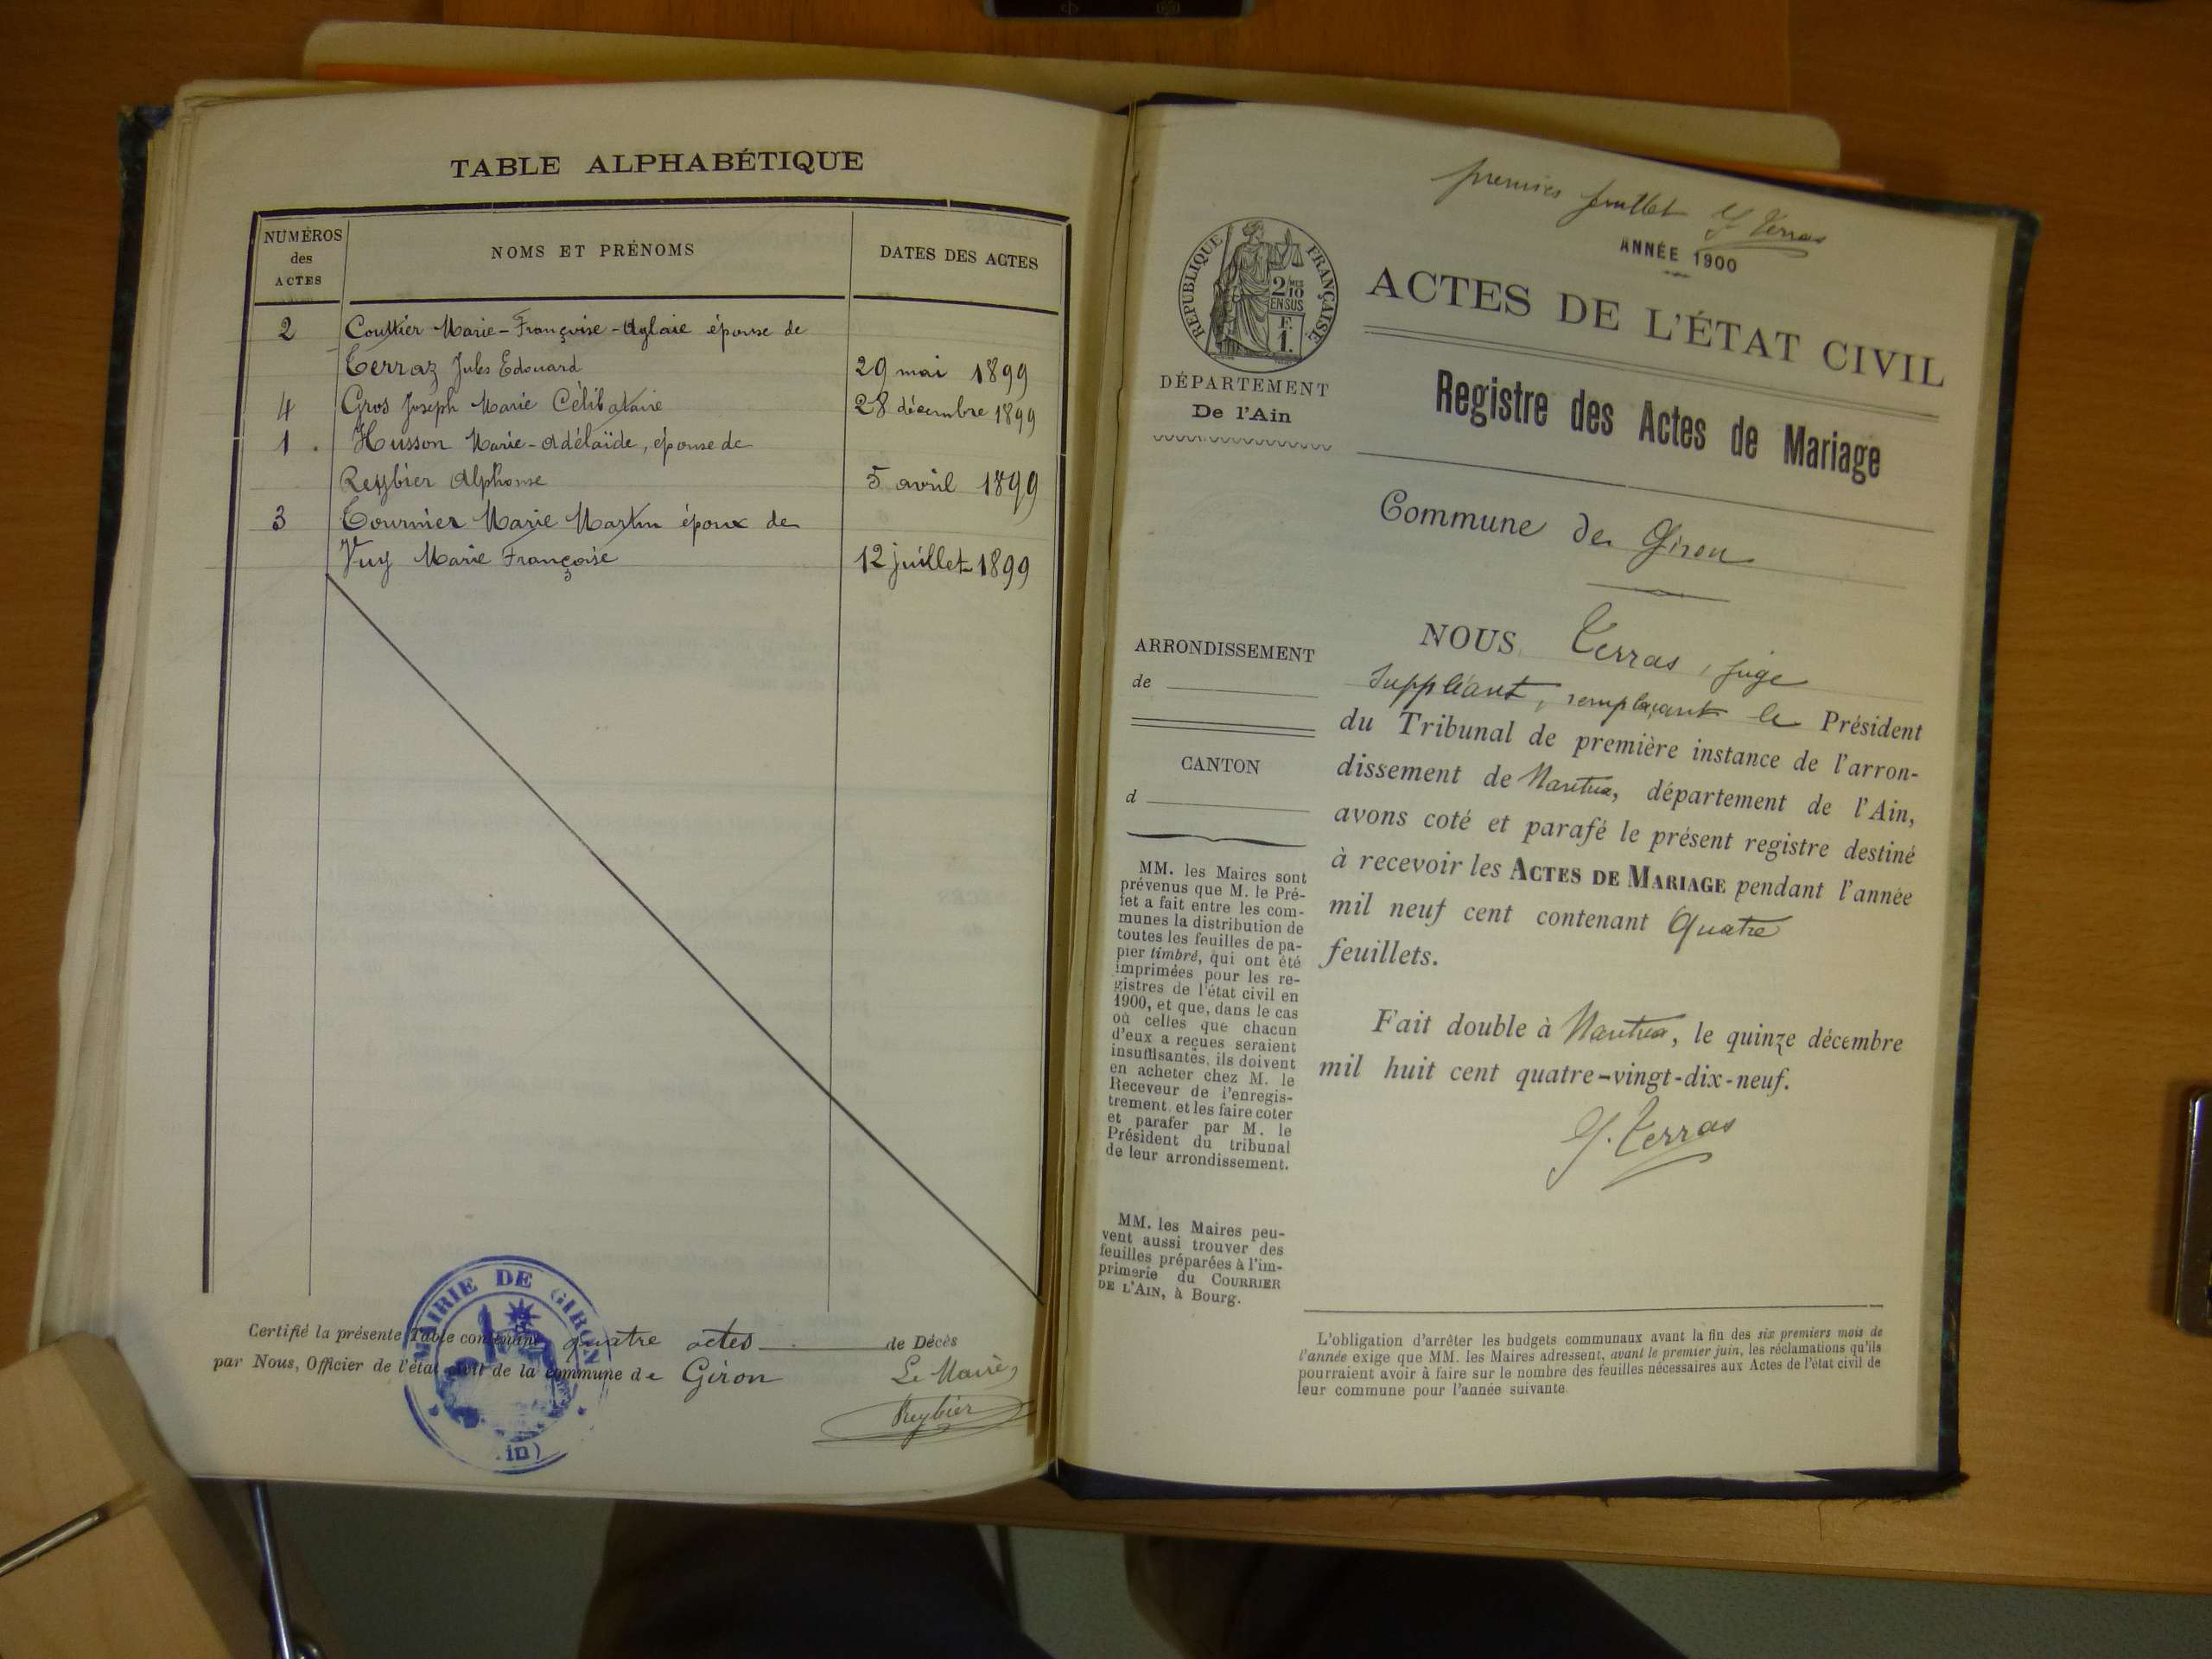 TABLE ALPHABÉTIQUE
NUMÉROS
des
ACTES
NOMS ET PRÉNOMS
DATES DES ACTES
2 Couttier Marie-Françoise-Aglaie épouse de
Terraz Jules Edouard 29 mai 1899
4 Gros Joseph Marie Célibataire 28 décembre 1899
1. Husson Marie-Adélaïde, épouse de
Reybier Alphonse 5 avril 1899
3 Tournier Marie Martin époux de
Vuy Marie Françoise 12 juillet 1899
Certifié la présente Table contenant quatre actes de Décès
par Nous, Officier de l'état civil de la commune de Giron
Le Maire,
Reybier
MAIRIE DE GIRON
in)
premier feuillet G. Terras
ANNÉE 1900
RÉPUBLIQUE FRANÇAISE
2/10 MES
EN SUS
F.
1.
ACTES DE L'ÉTAT CIVIL
DÉPARTEMENT
De l'Ain
Registre des Actes de Mariage
Commune de Giron
NOUS, Terras, juge
suppléant, remplaçant le Président
du Tribunal de première instance de l'arron-
dissement de Nantua, département de l'Ain,
avons coté et parafé le présent registre destiné
à recevoir les ACTES DE MARIAGE pendant l'année
mil neuf cent contenant Quatre
feuillets.
Fait double à Nantua, le quinze décembre
mil huit cent quatre-vingt-dix-neuf.
G. Terras
ARRONDISSEMENT
de
CANTON
d
MM. les Maires sont
prévenus que M. le Pré-
fet a fait entre les com-
munes la distribution de
toutes les feuilles de pa-
pier timbré, qui ont été
imprimées pour les re-
gistres de l'état civil en
1900, et que, dans le cas
où celles que chacun
d'eux a reçues seraient
insuffisantes, ils doivent
en acheter chez M. le
Receveur de l'enregis-
trement, et les faire coter
et parafer par M. le
Président du tribunal
de leur arrondissement.
MM. les Maires peu-
vent aussi trouver des
feuilles préparées à l'im-
primerie du COURRIER
DE L'AIN, à Bourg.
L'obligation d'arrêter les budgets communaux avant la fin des six premiers mois de
l'année exige que MM. les Maires adressent, avant le premier juin, les réclamations qu'ils
pourraient avoir à faire sur le nombre des feuilles nécessaires aux Actes de l'état civil de
leur commune pour l'année suivante.